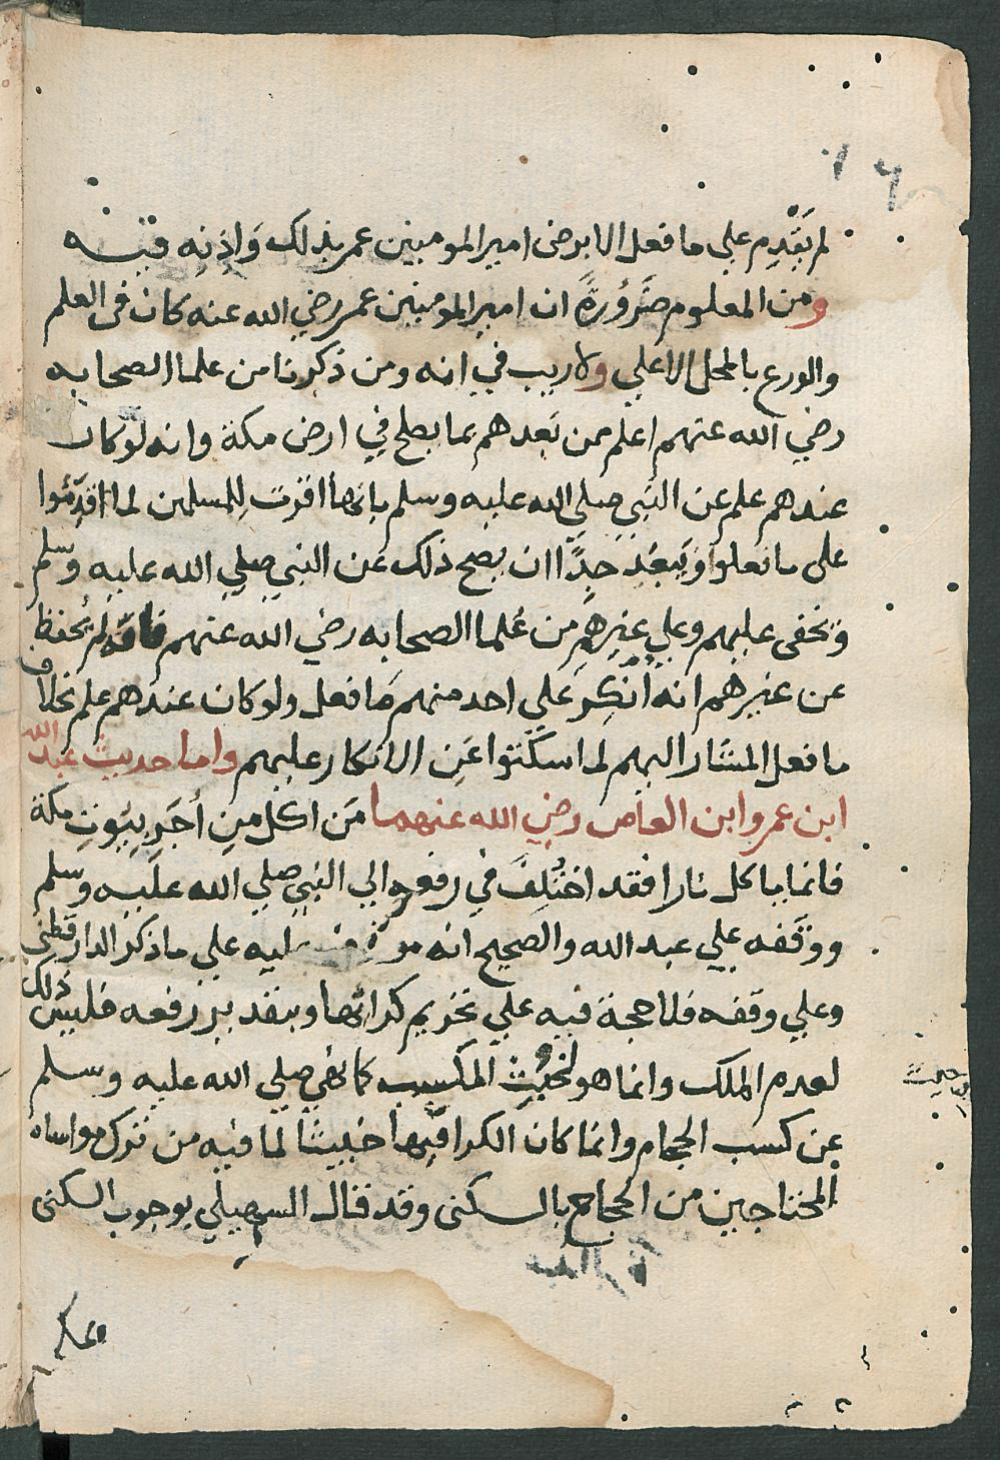 لم يقدم علي ما فعل الا برضى امير المومنين عمر بذلك واذنه فيه
ومن المعلوم ضرورة ان امير المومنين عمر رضي الله عنه كان في العلم
والورع بالمحل الاعلي ولا ريب في انه ومن ذكرنا من علما الصحابه
رضي الله عنهم اعلم ممن بعدهم بما يصلح في ارض مكة وانه لو كان
عندهم علم عن النبي صلي الله عليه وسلم بانها اقرت للمسلمين لما اقدموا
على ما فعلوا ويبعد جدا ان يصح ذلك عن النبي صلي الله عليه وسلم
ويخفى عليهم وعلي غيرهم من علما الصحابه رضي الله عنهم فانه لم يحفظ
عن غيرهم انه انكر علي احد منهم ما فعل ولو كان عندهم علم بخلاف
ما فعل المشار اليهم لما سكتوا عن الانكار عليهم واما حديث عبد الله
ابن عمرو ابن العاص رضي الله عنهما من اكل من اجر بيوت مكة
فانما ياكل نارا فقد اختلف في رفعه الي النبي صلي الله عليه وسلم
ووقفه علي عبد الله والصحيح انه موقوف عليه علي ما ذكر الدارقطني
وعلي وقفه فلا حجة فيه علي تحريم كرائها وبتقدير رفعه فليس ذلك
لعدم الملك وانما هو لخبث المكسب كما نهي صلي الله عليه وسلم
عن كسب الحجام وانما كان الكرا فيها خبيثا لما فيه من ترك مواساة
المحتاجين من الحجاج بالسكنى وقد قال السهيلي بوجوب السكنى